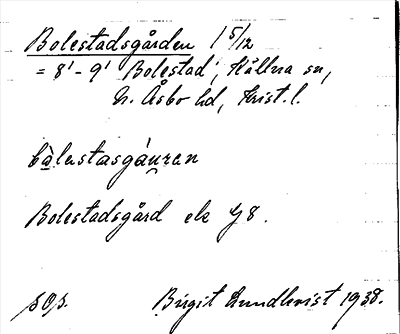 Bolestadsgården 1 5/12
= 8¹ - 9¹ Bolestad, Källna sn,
N. Åsbo hd, Krist. l.
bòlastasgáuren
Bolestadsgård ek 48.
sOp. Birgit Lundkvist 1938.